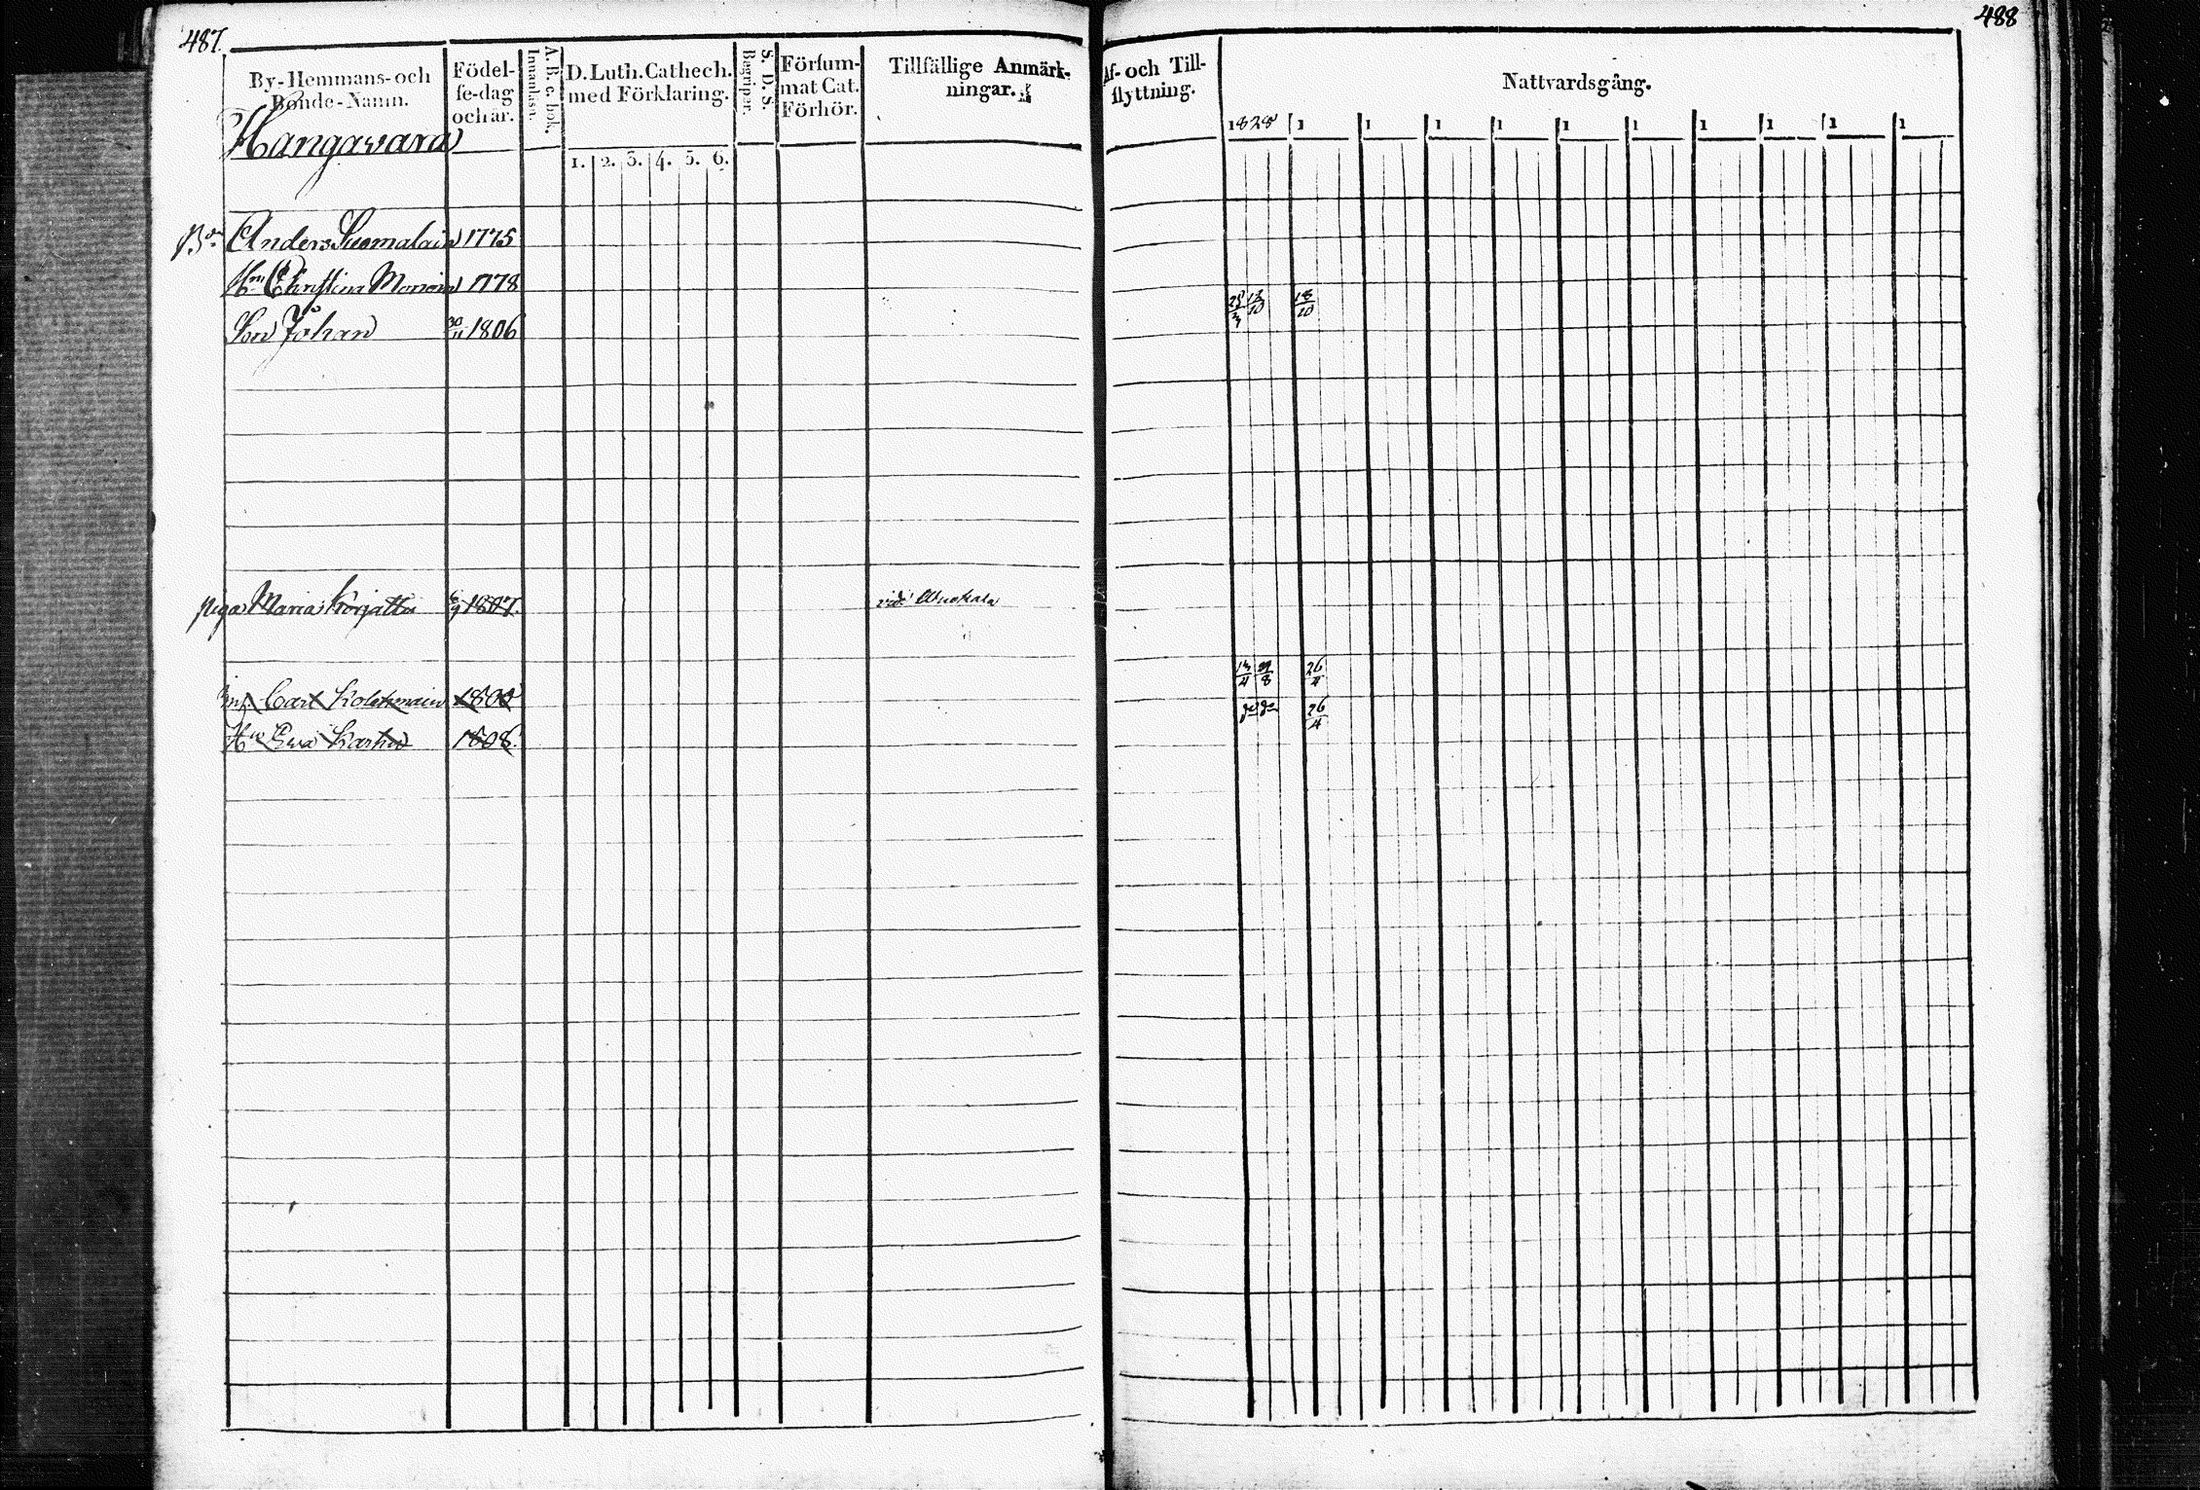 487.
By-Hemmans- och Bonde-Namn.
Födel-se-dag och år.
A. B. c. bok. Innanläsn.
D. Luth. Cathech. med Förklaring.
1. 2. 3. 4. 5. 6.
S. D. S. Begriper.
Försum-mat Cat. Förhör.
Tillfällige Anmärk-ningar.
Hangavara
Bon Anders Suomalain 1775
Hu Christina 1778
Son Johan 30/11 1806
piga Maria 1807.
vide
Carl Kolehmain
Hu Ewa 1808.
488
Af- och Till-flyttning.
Nattvardsgång.
1828 1 1 1 1 1 1 1 1 1 1
18/10
13/4 26/4
do do 26/4